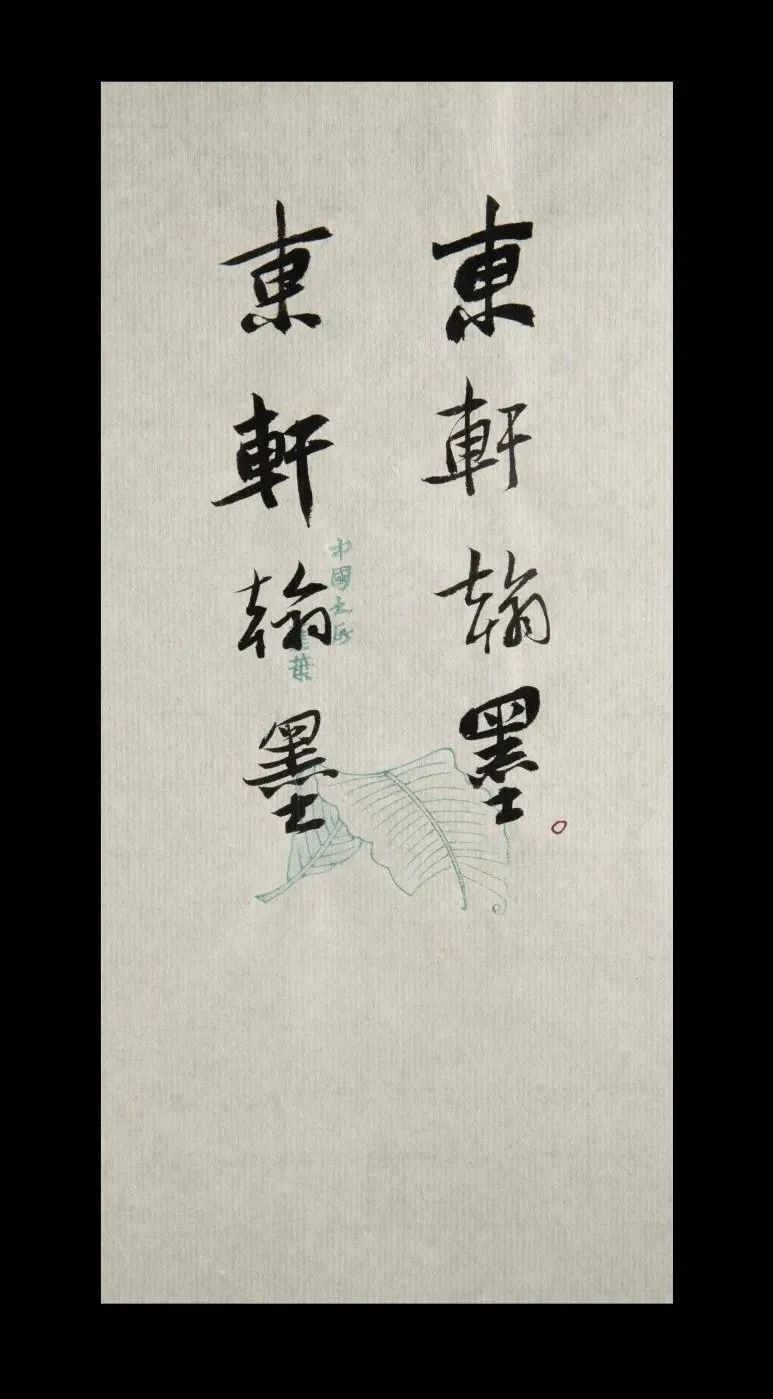 東軒翰墨
東軒翰墨
中國
葉